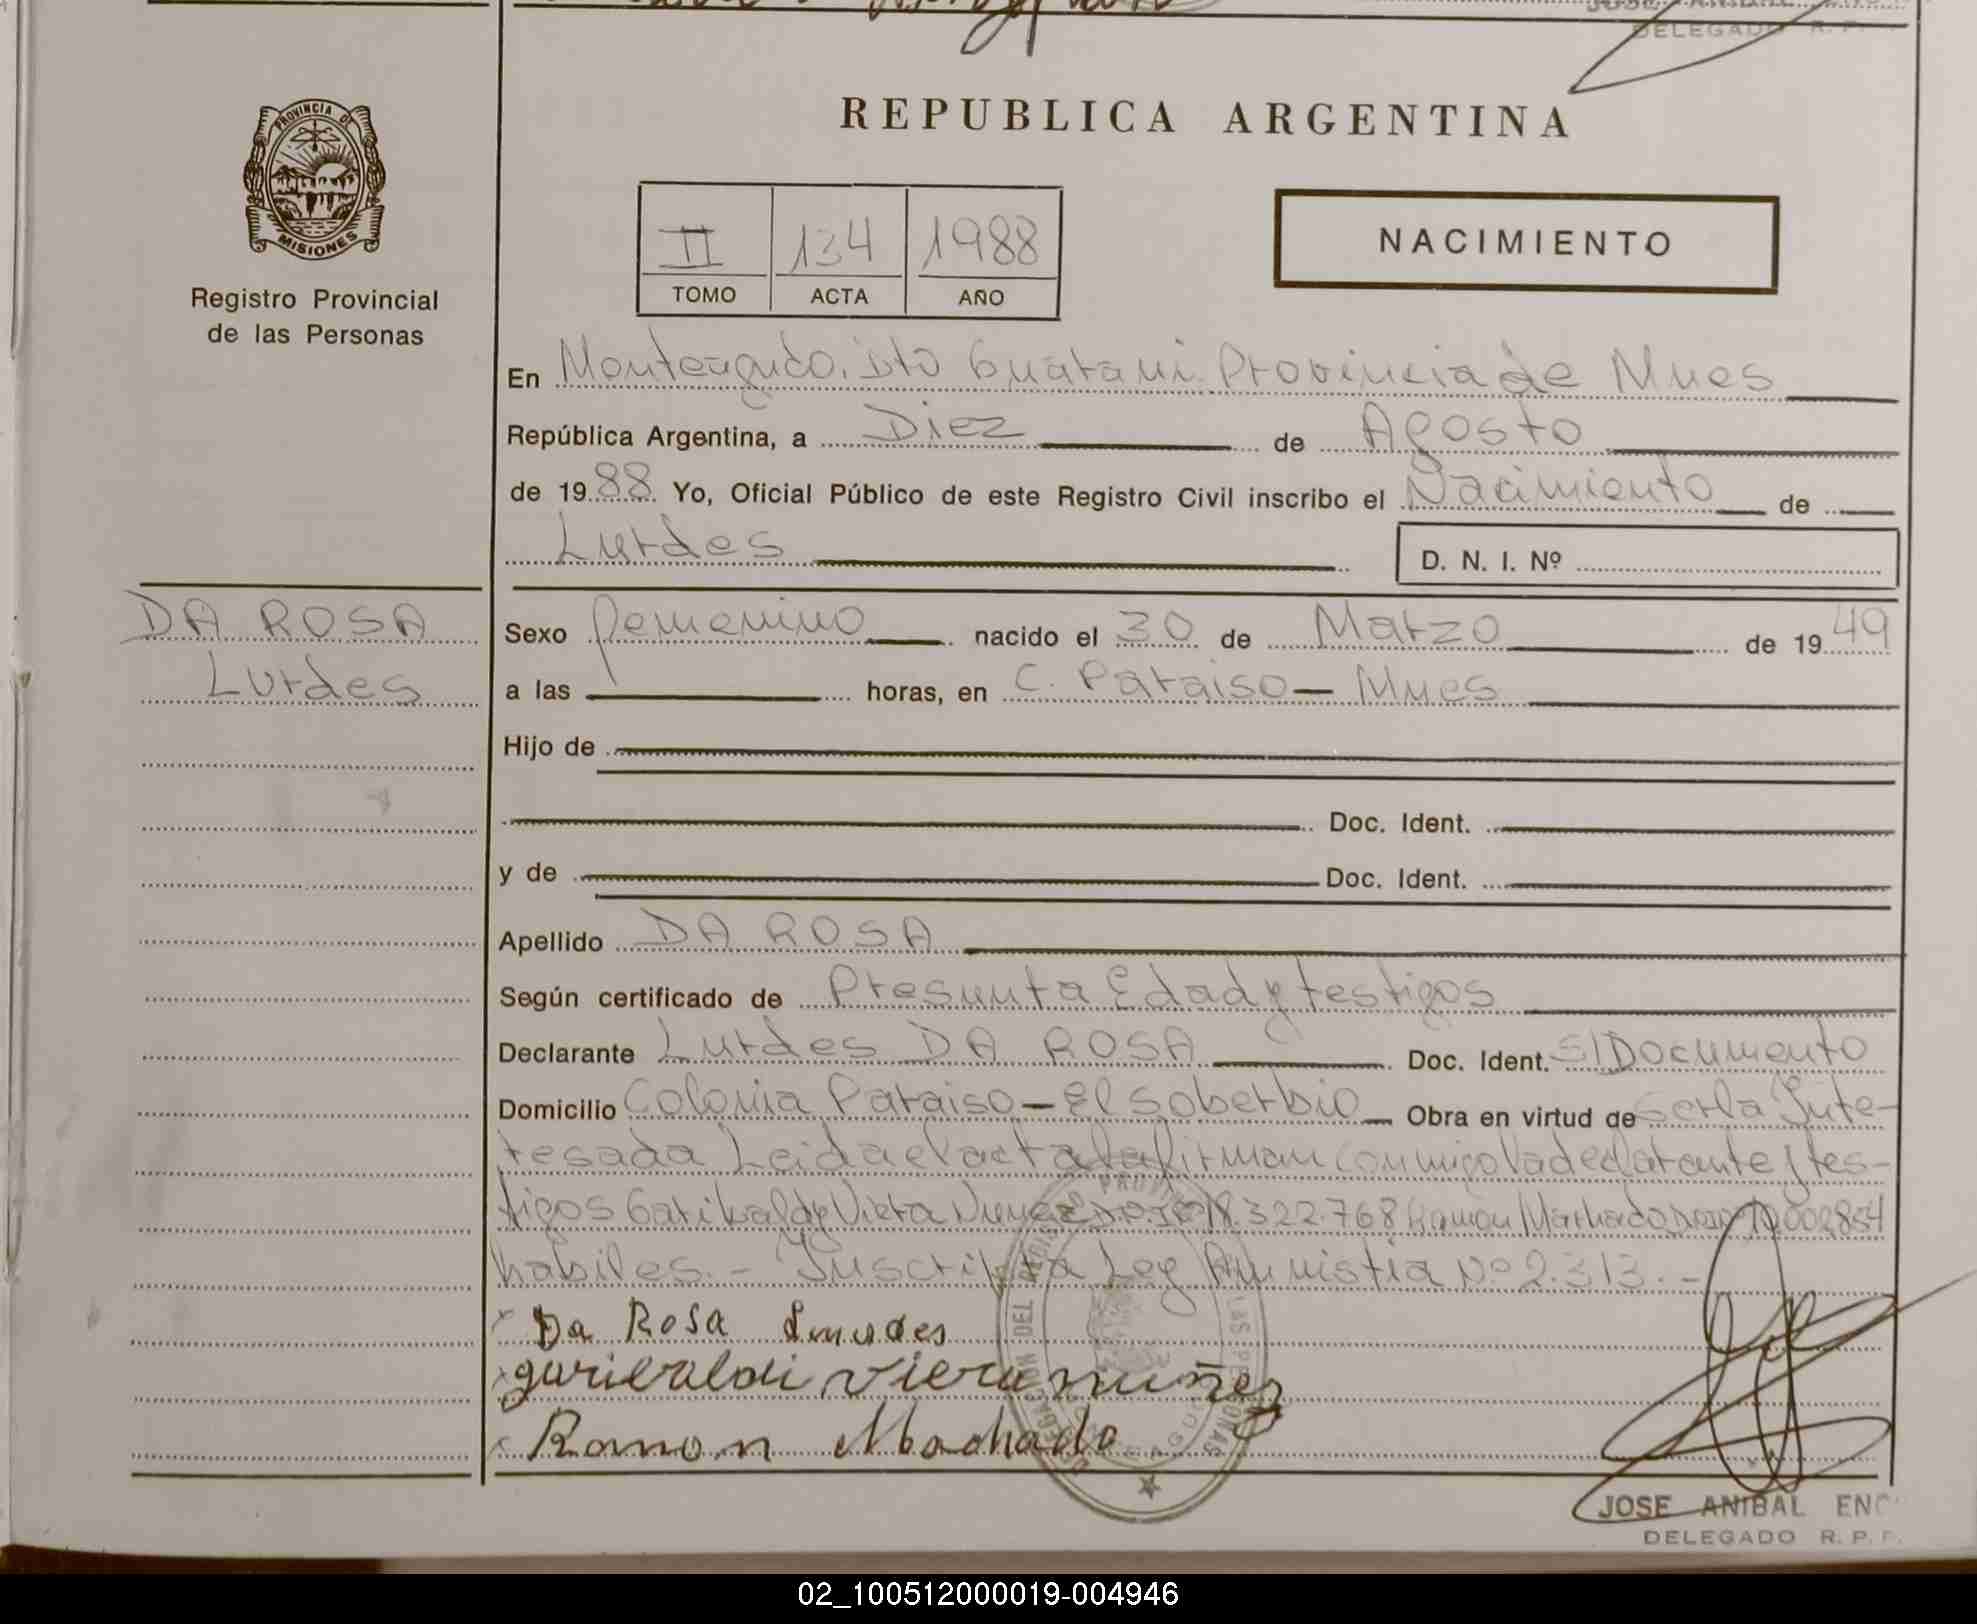 JOSE ANIBAL
DELEGADO R. P.
PROVINCIA DE
MISIONES
Registro Provincial
de las Personas
REPUBLICA ARGENTINA
II 134 1988
TOMO ACTA AÑO
NACIMIENTO
En Monteagudo. Dto Guarani. Provincia de Mnes
República Argentina, a Diez de Agosto
de 1988 Yo, Oficial Público de este Registro Civil inscribo el Nacimiento de
Lurdes D. N. I. Nº
DA ROSA
Lurdes
Sexo femenino nacido el 30 de Marzo de 1949
a las horas, en C. Paraiso - Mnes
Hijo de
Doc. Ident.
y de Doc. Ident.
Apellido DA ROSA
Según certificado de Presunta Edad y testigos
Declarante Lurdes DA ROSA Doc. Ident. S/Documento
Domicilio Colonia Paraiso - El Soberbio Obra en virtud de ser la Inte-
resada Leida el acta la firman conmigo la declarante y tes-
tigos Garibaldy Viera Nuñez D.N.I. Nº 18.322.768 Ramón Machado 10.002854
habiles. - Inscripta Ley Amnistia Nº 2.313. -
Da ROSA Lurdes
garibaldi viera nuñez
Ramon Machado
DELEGACION DEL REGISTRO PROVINCIAL DE LAS PERSONAS
JOSE ANIBAL ENC
DELEGADO R. P. P.
02_100512000019-004946